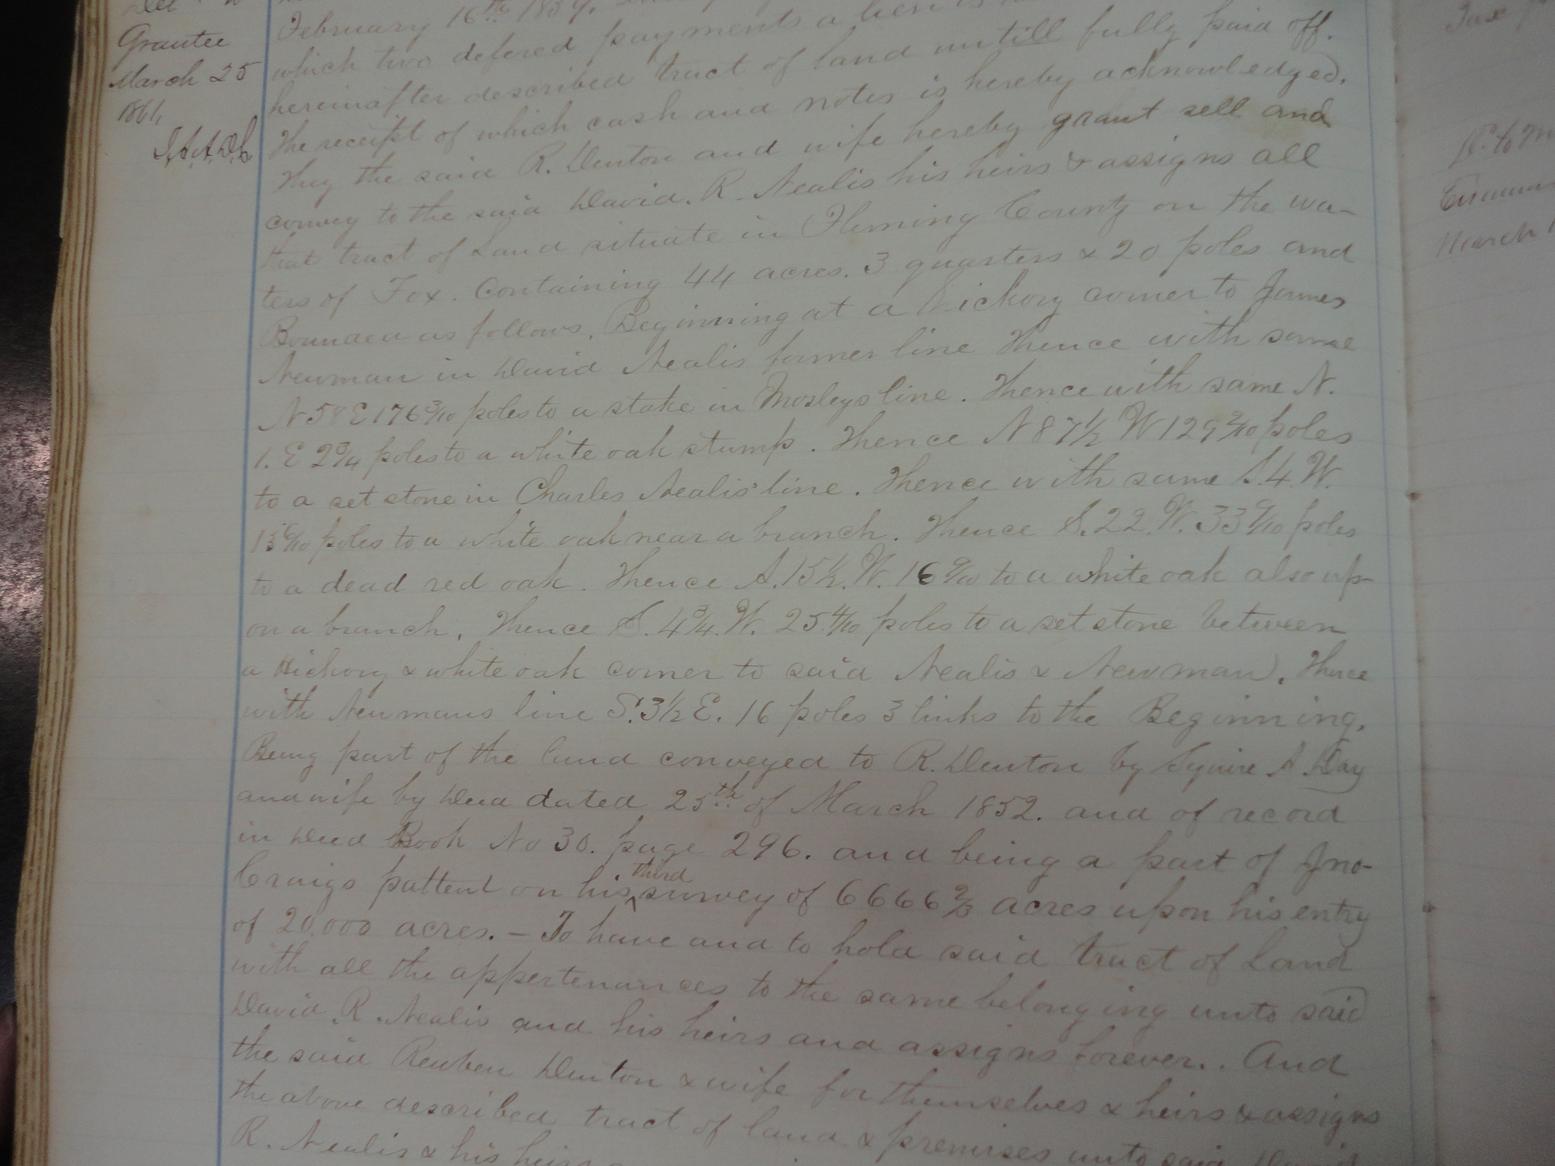 Grantee
March 25
186
February 16th 1859.
which two defered payments a lien is
hereinafter described tract of land untill fully paid off.
The receipt of which cash and notes is hereby acknowledged.
They the said R. Denton and wife hereby grant sell and
convey to the said David. R. Nealis his heirs & assigns all
that tract of Land situate in Fleming County on the wa-
ters of Fox. Containing 44 acres. 3 quarters & 20 poles and
Bounded as follows. Beginning at a Hickory corner to James
Newman in David Nealis former line Thence with same
N 58 E 176 3/10 poles to a stake in Mosleys line. Thence with same N.
1. E poles to a white oak stump. Thence N 87 1/2 W 129 poles
to a set stone in Charles Nealis' line. Thence with same S. 4 W.
poles to a white oak near a branch. Thence S. 22. W. 33 poles
to a dead red oak. Thence S. 15 1/2. W. 16 to a white oak also up-
on a branch. Thence S. 4 3/4. W. 25 4/10 poles to a set stone between
a Hickory & white oak corner to said Nealis & Newman. Thence
with Newmans line S. 3 1/2 E. 16 poles 3 links to the Beginning.
Being part of the land conveyed to R. Denton by Squire A. Day
and wife by Deed dated 25th of March 1852. and of record
in Deed Book No 30. page 296. and being a part of Jno
Craigs pattent on his third survey of 6666 2/3 acres upon his entry
of 20,000 acres. — To have and to hold said tract of Land
with all the appertenances to the same belonging unto said
David. R. Nealis and his heirs and assigns forever.. And
the said Reuben Denton & wife for themselves & heirs & assigns
the above described tract of land & premises unto said
R. Nealis & his heirs
March